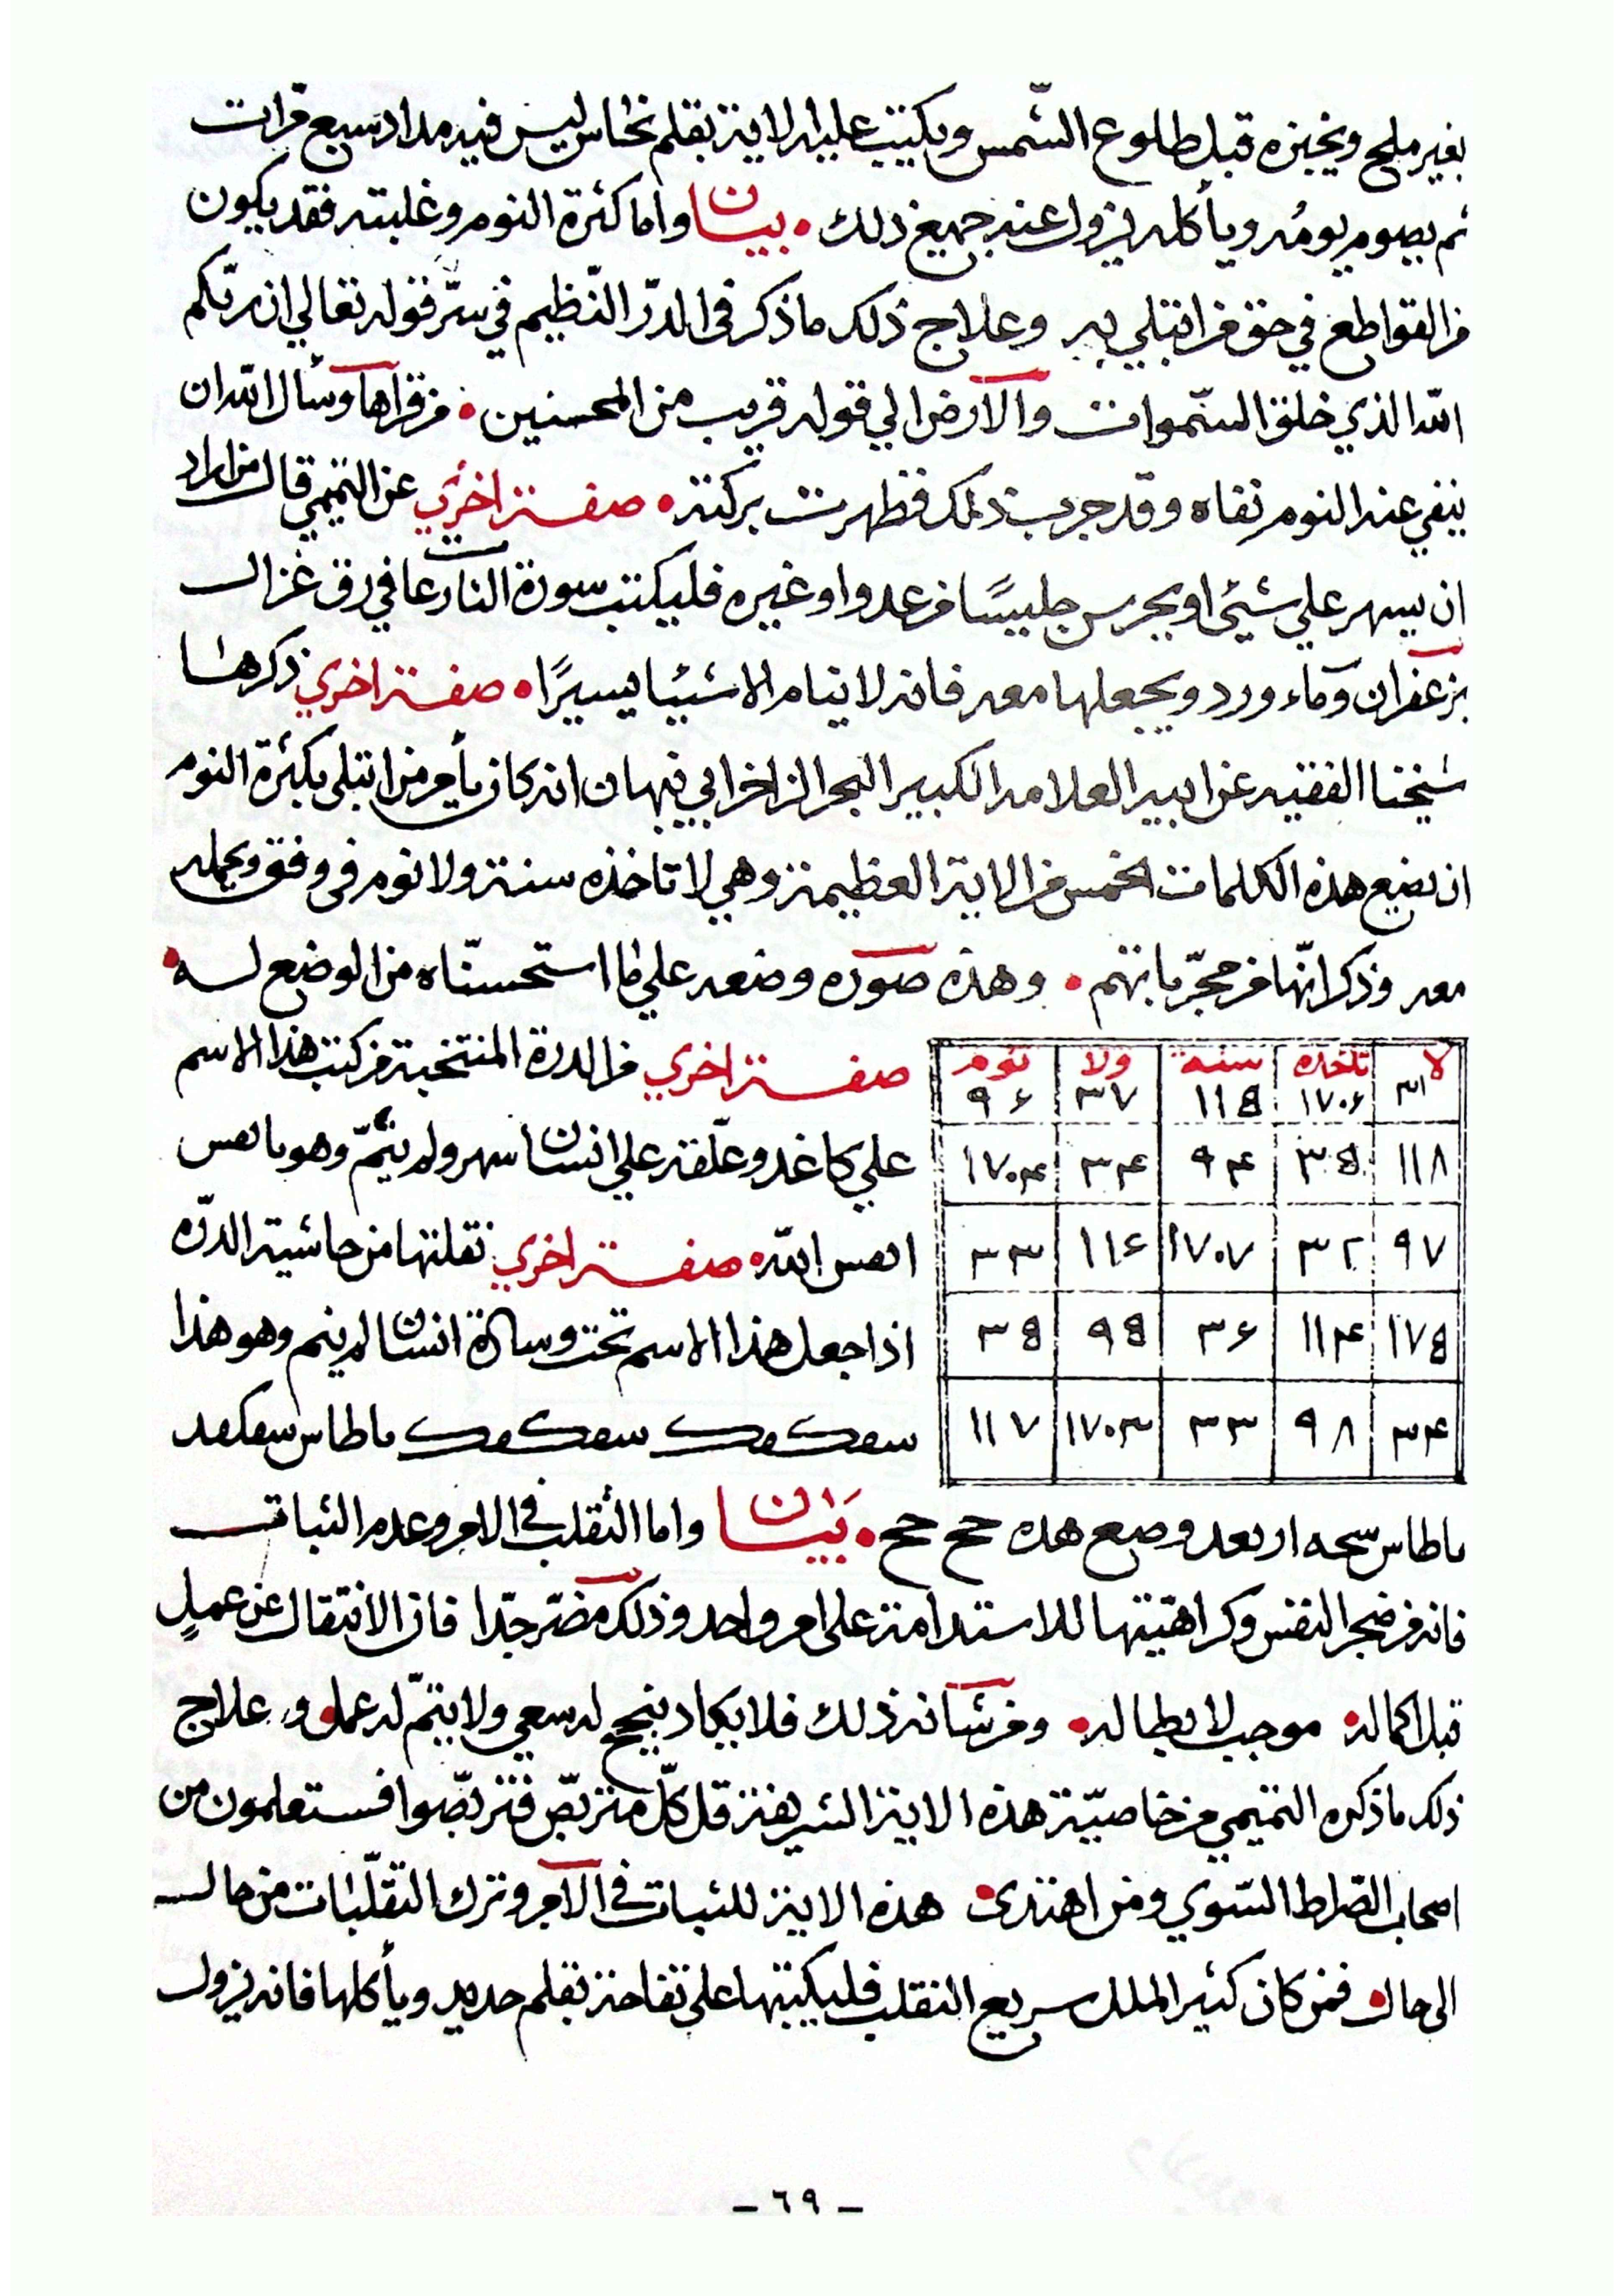 بغير ملح ويخبزه قبل طلوع الشّمس ويكتب عليه الاية بقلم نحاس ليس فيه مداد سبع مرّات
ثم يصوم يومُه ويأكله يزول عنه جميع ذلك • بيان واما كثرة النوم وغلبته فقد يكون
من القواطع في حق من ابتلي به وعلاج ذلك ما ذكر في الدرّ النّظيم في سرّ قوله تعالي ان ربّكم
الله الذي خلق السّموات والارض الي قوله قريب من المحسنين • من قراها وسأل الله ان
ينفي عنه النوم نفاه وقد جرب ذلك فظهرت بركته • صفة اخري عن التميمي قال من اراد
ان يسهر علي شيئ او يحرس جليسًا من عدو او غيره فليكتب سورة النازعات في رق غزال
بزعفران وماء ورد ويجعلها معه فانه لا ينام الا شيئا يسيرًا • صفة اخري ذكرها
شيخنا الفقيه عن ابيه العلامه الكبير البحر الزاخر ابي نبهان انه كان يأمر من ابتلي بكثرة النوم
ان يضع هذه الكلمات الخمس من الاية العظيمة وهي لا تاخذه سنة ولا نوم في وفق ويحمله
معه وذكر انّها من مجرّباتهم • وهذه صوره وضعه علي ما استحسنّاه من الوضع له •
لا تاخذه سنة ولا نوم
٣١ ١٧٠٦ ١١٥ ٣٧ ٩٦
١١٨ ٣٥ ٩٤ ٣٤ ١٧٠٤
٩٧ ٣٢ ١٧٠٧ ١١٦ ٣٣
١٧٥ ١١٤ ٣٦ ٩٥ ٣٥
٣٤ ٩٨ ٣٣ ١٧٠٣ ١١٧
صفة اخري من الدرة المنتخبة من كتب هذا الاسم
علي كاغد وعلّقه علي انسان سهر ولم ينم وهو
الله • صفة اخري نقلتها من حاشية الدرّه
اذا جعل هذا الاسم تحت وسادة انسان لم ينم وهو هذا
ماطاس
ماطاس اربعه وضع هده حح حح • بيان واما التقلب في الامر وعدم الثبات
فانه من ضجر النفس وكراهيتها للاستدامة علي امر واحد وذلك مضرّ جدّا فان الانتقال عن عملٍ
قبل اكماله • موجب لابطاله • ومن شانه ذلك فلا يكاد ينجح له سعي ولا يتمّ له عمل • وعلاج
ذلك ما ذكره التميمي من خاصيّة هذه الاية الشريفة قل كلّ متربّص فتربّصوا فستعلمون من
اصحاب الصّراط السّوي ومن اهتدى • هذه الاية للثبات في الامر وترك التقلّبات من حال
الى حال • فمن كان كثير الملل سريع التقلب فليكتبها علي تفاحة بقلم حديد ويأكلها فانه يزول
– ٦٩ –